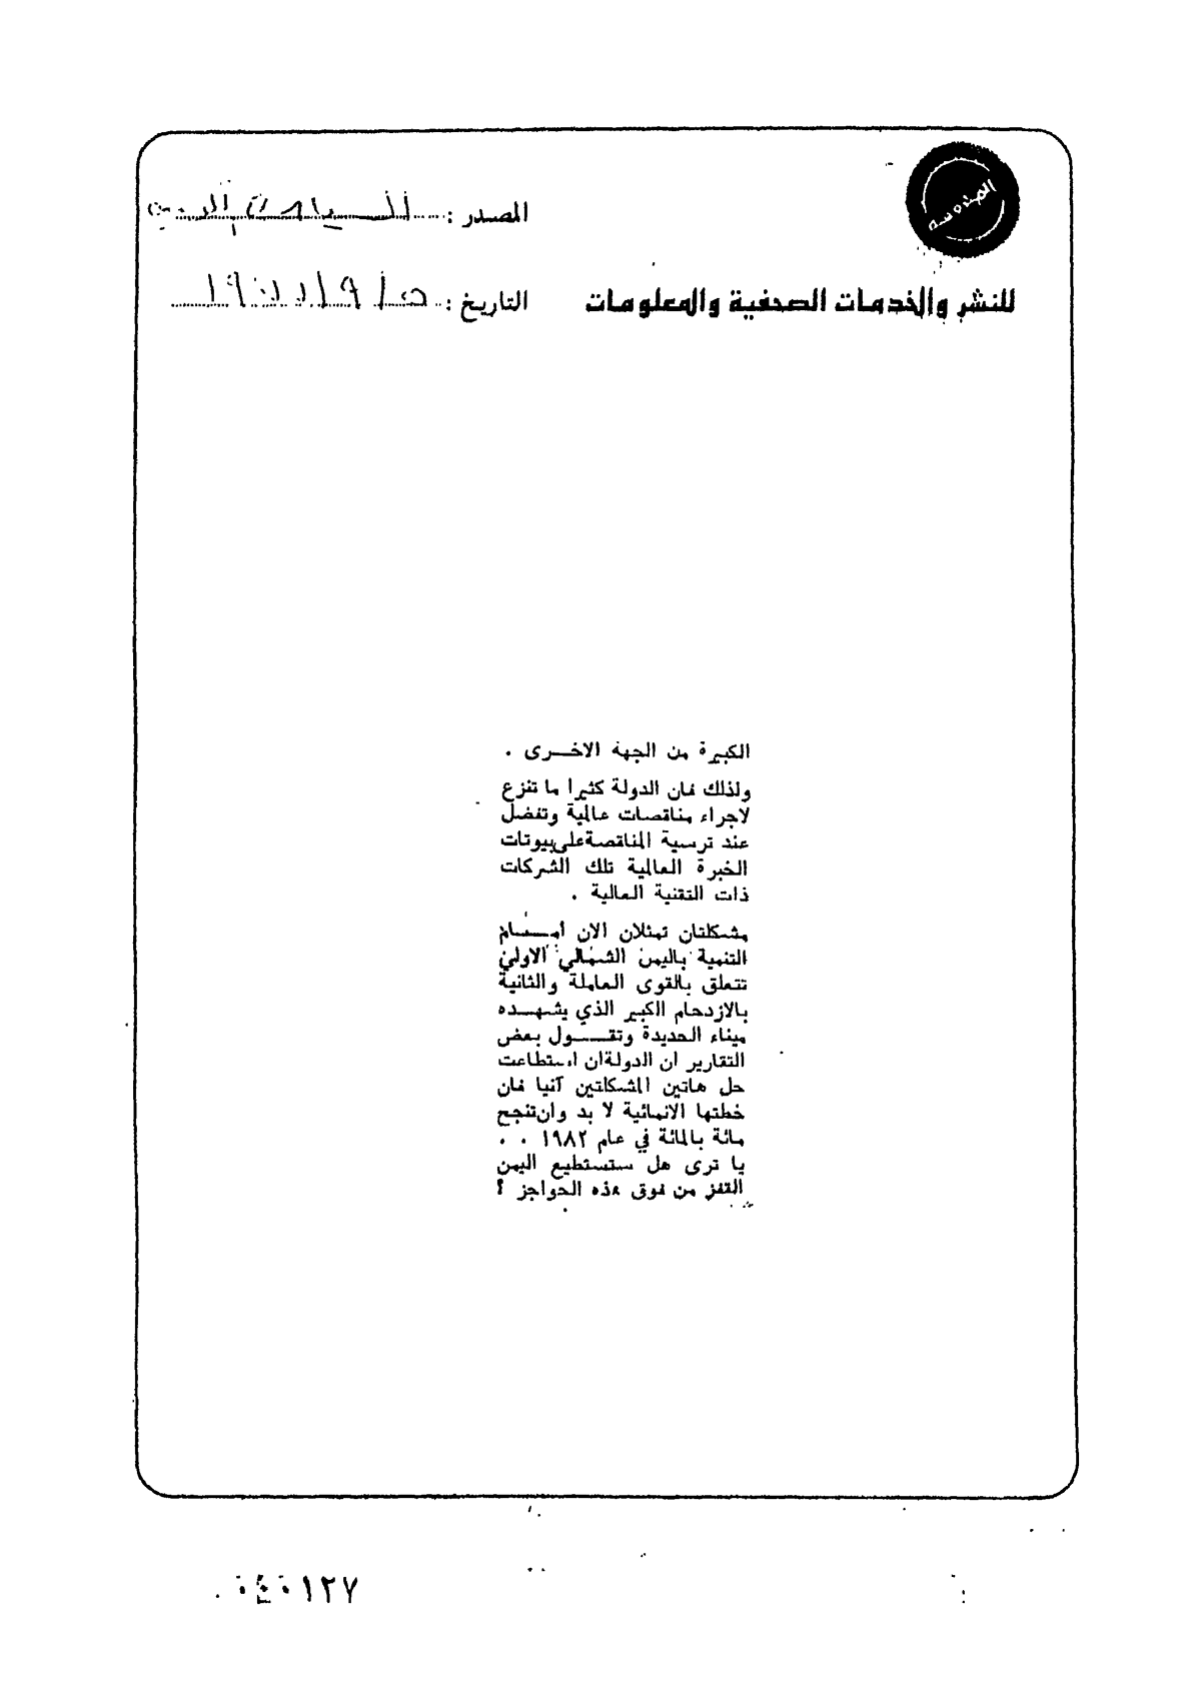 المصدر :
للنشر والخدمات الصحفية والمعلومات
التاريخ :
الكبيرة من الجهة الاخــرى .
ولذلك فان الدولة كثيرا ما تنزع
لاجراء مناقصات عالمية وتفضل
عند ترسية المناقصة على بيوتات
الخبرة العالمية تلك الشركات
ذات التقنية العالية .
مشكلتان تمثلان الان أمــام
التنمية باليمن الشمالي الاولى
تتعلق بالقوى العاملة والثانية
بالازدحام الكبير الذي يشهــده
ميناء الحديدة وتقــول بعض
التقارير ان الدولة ان استطاعت
حل هاتين المشكلتين آنيا فان
خطتها الانمائية لا بد وان تنجح
مائة بالمائة في عام ١٩٨٢ . .
يا ترى هل ستستطيع اليمن
القفز من فوق هذه الحواجز ؟